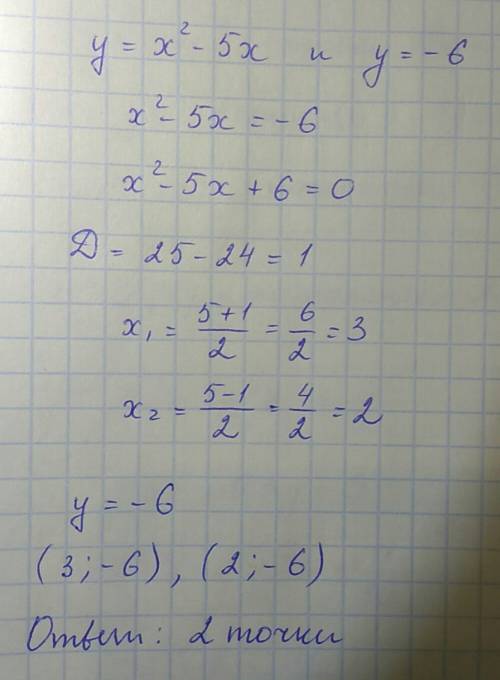 y = x² - 5x и y = - 6
x² - 5x = - 6
x² - 5x + 6 = 0
D = 25 - 24 = 1
x₁ = (5+1)/2 = 6/2 = 3
x₂ = (5-1)/2 = 4/2 = 2
y = - 6
(3; -6), (2; -6)
Ответ: 2 точки